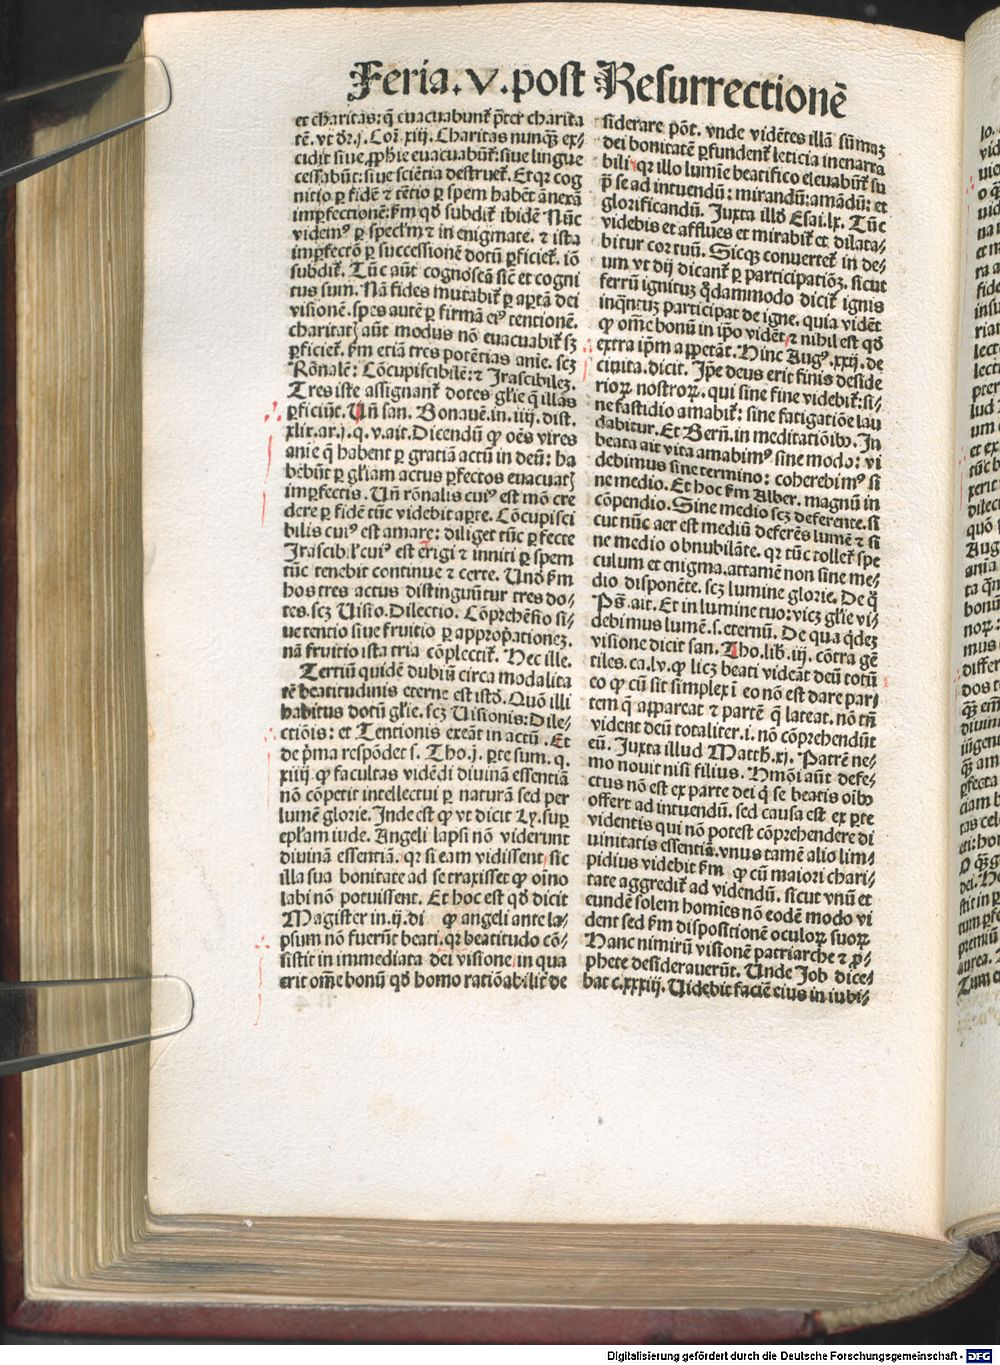 Feria.V.post Resurrectionē
et charitas: q̄ euacuabunt᷑ p̄ter charita
tē. vt dr̄.j. Cor̄.xiij. Charitas nunq̄ ex⸗
cidit siue ꝓphie euacuabūt᷑: siue lingue
cessabūt: siue sciētia destruet᷑. Et qꝛ cog
nitio ꝑ fidē ⁊ tētio ꝑ spem habēt ānexā
imꝑfectionē: ẜm qd̓ subdit᷑ ibidē Nūc
videmꝰ ꝑ specl̓m ⁊ in enigmate. ⁊ ista
imꝑfectō ꝑ successionē dotū ꝑficiet᷑. iō
subdit᷑. Tūc aūt cognoscā sic̄ et cogni
tus sum. Nā fides mutabit᷑ ꝑ aꝑtā dei
visionē. spes autē ꝑ firmā eiꝰ tentionē.
charitatꝭ aūt modus nō euacuabit᷑ sꝫ
ꝑficiet᷑. ẜm etiā tres potētias anie. scꝫ
Rōnalē: Cōcupiscibilē: ⁊ Irascibilēꝫ.
Tres iste assignant᷑ dotes gl̓ie q̄ illas
ꝑficiūt. Un̄ san. Bonauē. in. iiij. dist.
xlix. ar. j. q. v. ait. Dicendū ꝙ oēs vires
anie q̄ habent ꝑ gratiā actū in deū: ha
bebūt ꝑ gl̓iam actus ꝑfectos euacuatꝭ
imꝑfectis. Un̄ rōnalis cuiꝰ est mō cre
dere ꝑ fidē tūc videbit aꝑte. Cōcupisci
bilis cuiꝰ est amare: diliget tūc ꝑfecte
Irascibil̓ cuiꝰ est erigi ⁊ inniti ꝑ spem
tūc tenebit continue ⁊ certe. Und̓ ẜm
hos tres actus distinguūtur tres do⸗
tes. scꝫ Uisio. Dilectio. Cōprehēsio si⸗
ue tentio siue fruitio ꝑ appropationeꝫ.
nā fruitio ista tria cōplectit᷑. Hec ille.
Tertiū quidē dubiū circa modalita
tē beatitudinis eterne est istd̓. Quō illi
habitus dotū gl̓ie. scꝫ Uisionis: Dile⸗
ctiōis: et Tentionis exeāt in actū. Et
de p̓ma respōdet s. Tho. j. ꝑte sum. q.
xiiij ꝙ facultas vidēdi diuinā essentiā
nō cōpetit intellectui ꝑ naturā sed per
lumē glorie. Inde est ꝙ vt dicit Ly. sup̄
epl̓am iude. Angeli lapsi nō viderunt
diuinā essentiā. qꝛ si eam vidissent sic
illa sua bonitate ad se traxisset ꝙ oīno
labi nō potuissent. Et hoc est qd̓ dicit
Magister in. ij. di ꝙ angeli ante la⸗
psum nō fuerūt beati. qꝛ beatitudo cō⸗
sistit in immediata dei visione in qua
erit om̄e bonū qd̓ homo ratiōabilit᷑ de
siderare pōt. vnde vidētes illā sūmaꝫ
dei bonitatē ꝑfundent᷑ leticia inenarra
bili qꝛ illo lumīe beatifico eleuabūt᷑ su
p̄ se ad intuendū: mirandū: amādū: et
glorificandū. Juxta illd̓ Esai. lx. Tūc
videbis et afflues et mirabit᷑ et dilata⸗
bitur cor tuū. Sicqꝫ conuertet᷑ in de⸗
um vt dij dicant᷑ ꝑ participatiōꝫ. sicut
ferrū ignitus q̄dammodo dicit᷑ ignis
inq̄ntuꝫ participat de igne. quia vidēt
ꝙ om̄e bonū in ip̄o vidēt ⁊ nihil est qd̓
extra ip̄m appetāt. Hinc Augꝰ. xxij. de
ciuita. dicit. Ip̄e deus erit finis deside
rioꝝ nostroꝝ. qui sine fine videbit᷑: si⸗
ne fastidio amabit᷑: sine fatigatiōe lau
dabitur. Et Bern̄. in meditatiōibꝰ. In
beata ait vita amabimꝰ sine modo: vi
debimus sine termino: coherebimꝰ si
ne medio. Et hoc ẜm Alber. magnū in
cōpendio. Sine medio scꝫ deferente. si
cut nūc aer est mediū deferēs lumē ⁊ si
ne medio obnubilāte. qꝛ tūc tollet᷑ spe
culum et enigma. attamē non sine me⸗
dio disponēte. scꝫ lumine glorie. De q̄
Ps̄. ait. Et in lumine tuo: vicꝫ gl̓ie vi⸗
debimus lumē. s. eternū. De qua qdeꝫ
visione dicit san. Tho. lib̓. iij. cōtra gē
tiles. ca. lv. ꝙ licꝫ beati videāt deū totū
eo ꝙ cū sit simplex ī eo nō est dare par⸗
tem q̄ appareat ⁊ partē q̄ lateat. nō tn̄
vident deū totaliter. i. nō cōprehendūt
eū. Juxta illud Matth. xj. Patrē ne⸗
mo nouit nisi filius. Hmōi aūt defe⸗
ctus nō est ex parte dei q̄ se beatis oībꝰ
offert ad intuendū. sed causa est ex ꝑte
videntis qui nō potest cōprehendere di
uinitatis essentiā. vnus tamē alio lim⸗
pidius videbit ẜm ꝙ cū maiori chari⸗
tate aggredit᷑ ad videndū. sicut vnū et
eundē solem homīes nō eodē modo vi
dent sed ẜm dispositionē oculoꝝ suoꝝ
Hanc nimirū visionē patriarche ⁊ ꝓ⸗
phete desiderauerūt. Unde Job dice⸗
bat c. xxxiij. Uidebit faciē eius in iubi⸗
Digitalisierung gefördert durch die Deutsche Forschungsgemeinschaft - DFG